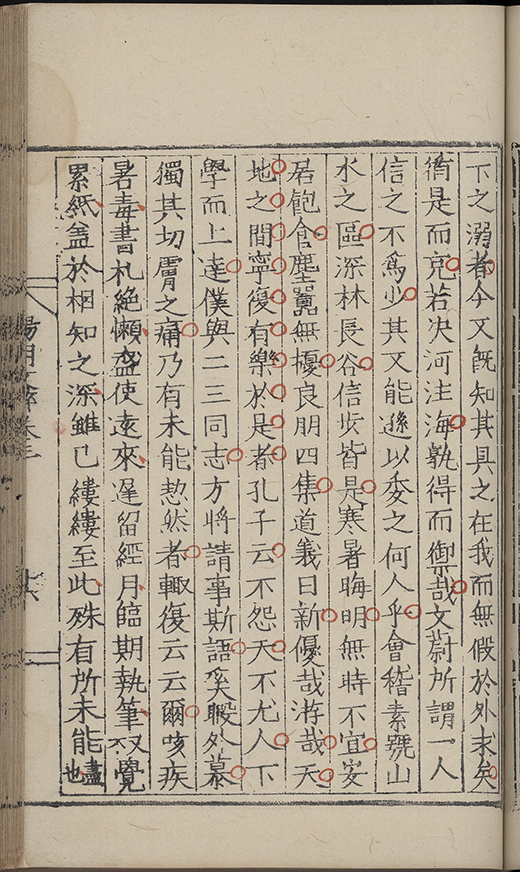 下之溺者今又旣知其具之在我而無假於外求矣
循是而充若决河注海孰得而禦哉文蔚所謂一人
信之不爲少其又能遜以委之何人乎會稽素號山
水之區深林長谷信步皆是寒暑晦明無時不宜安
居飽食塵囂無擾良朋四集道義日新優哉游哉天
地之間寧復有樂於是者孔子云不怨天不尤人下
學而上達僕與二三同志方將請事斯語奚暇外慕
獨其切膚之痛乃有未能恝然者輒復云云爾咳疾
暑毒書札絶懶盛使遠來遲留經月臨期執筆又不覺
累紙盖於相知之深雖已縷縷至此殊有所未能盡也